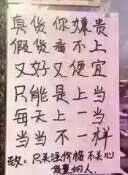 真货你嫌贵
假货看不上
又好又便宜
只能是上当
每天上一当
当当不一样
致：只关注价格不关心
质量的人。